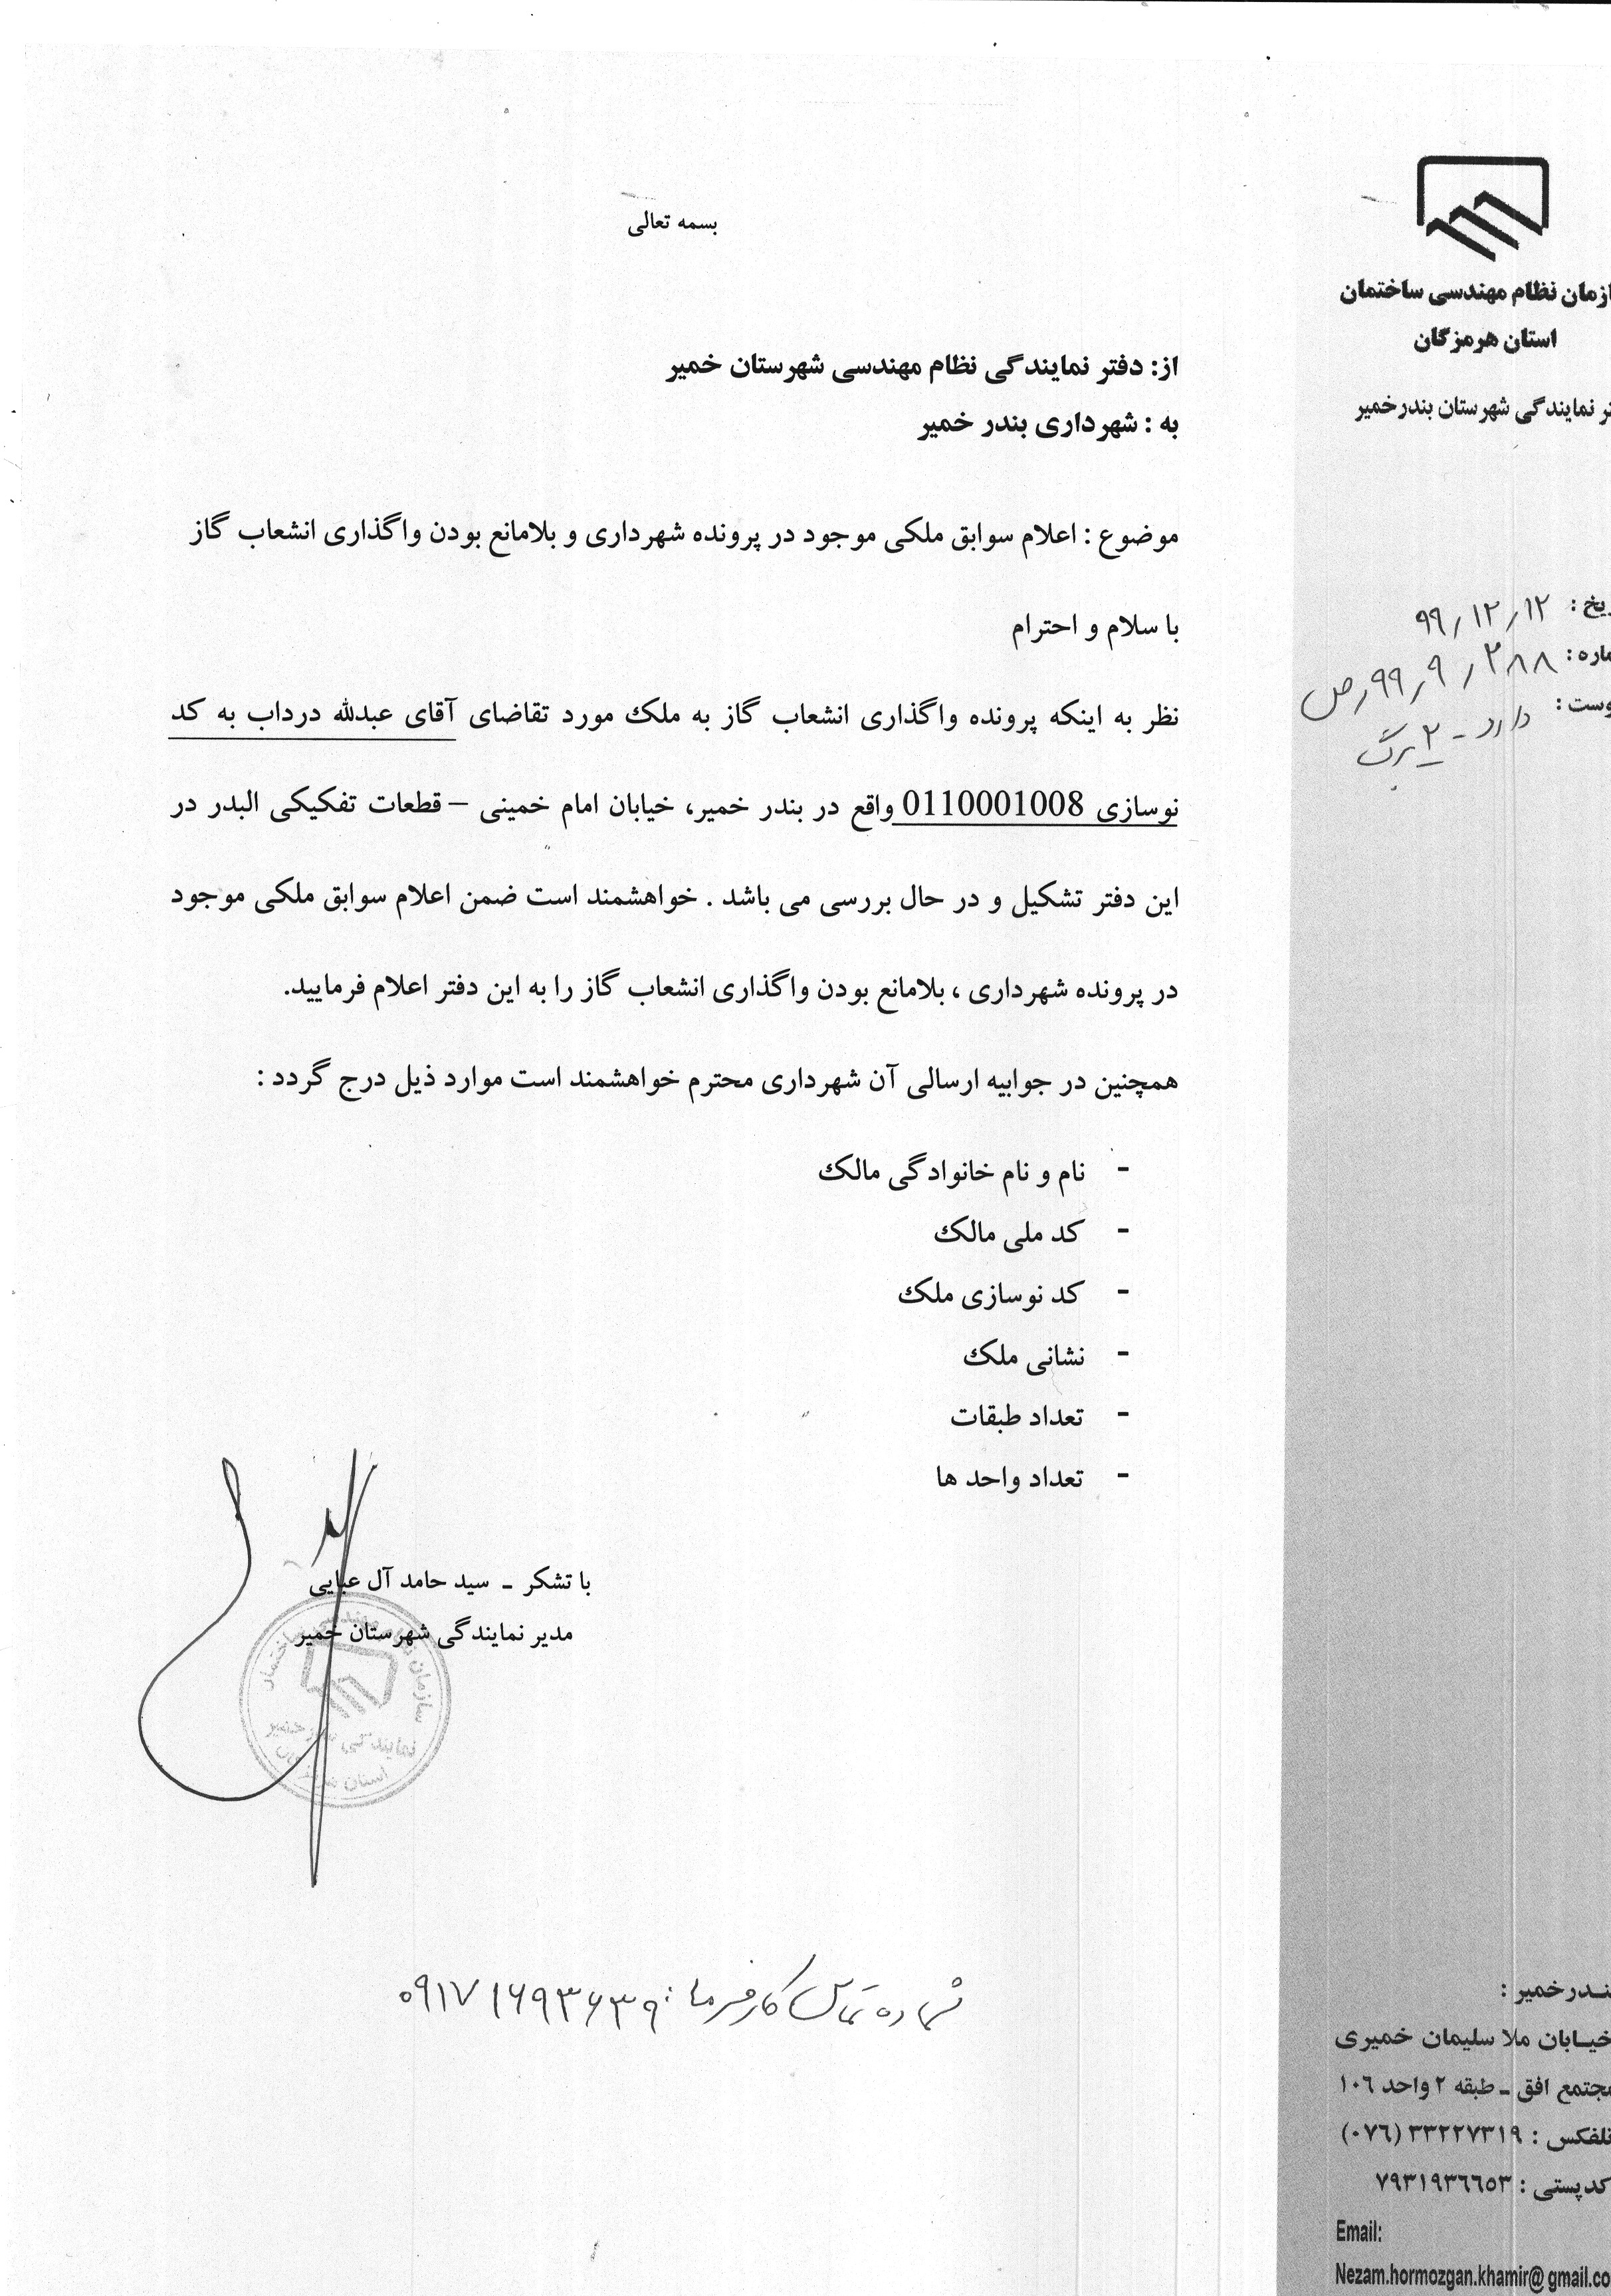 بسمه تعالی
ازمان نظام مهندسی ساختمان
استان هرمزگان
نمایندگی شهرستان بندرخمیر
یخ : ۹۹/۱۲/۱۲
ماره : ۲۸۸ / ۹ / ۹۹ / ص
وست : دارد - ۲ برگ
از: دفتر نمایندگی نظام مهندسی شهرستان خمیر
به : شهرداری بندر خمیر
موضوع : اعلام سوابق ملکی موجود در پرونده شهرداری و بلامانع بودن واگذاری انشعاب گاز
با سلام و احترام
نظر به اینکه پرونده واگذاری انشعاب گاز به ملک مورد تقاضای آقای عبدلله درداب به کد
نوسازی 0110001008 واقع در بندر خمیر، خیابان امام خمینی – قطعات تفکیکی البدر در
این دفتر تشکیل و در حال بررسی می باشد . خواهشمند است ضمن اعلام سوابق ملکی موجود
در پرونده شهرداری ، بلامانع بودن واگذاری انشعاب گاز را به این دفتر اعلام فرمایید.
همچنین در جوابیه ارسالی آن شهرداری محترم خواهشمند است موارد ذیل درج گردد :
- نام و نام خانوادگی مالک
- کد ملی مالک
- کد نوسازی ملک
- نشانی ملک
- تعداد طبقات
- تعداد واحد ها
با تشکر - سید حامد آل عبایی
مدیر نمایندگی شهرستان خمیر
شماره تماس کارفرما : ۰۹۱۷۱۶۹۳۶۳۹
ندرخمیر :
خیابان ملا سلیمان خمیری
جتمع افق - طبقه ۲ واحد ۱۰۶
تلفکس : ۳۳۲۲۷۳۱۹ (۰۷۶)
کدپستی : ۷۹۳۱۹۳۶۶۵۳
Email:
Nezam.hormozgan.khamir@gmail.co